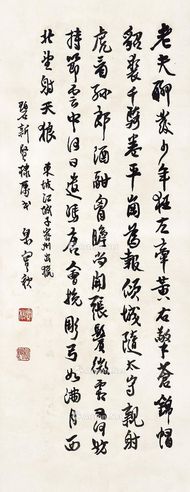 老夫聊發少年狂左牽黃右擎蒼錦帽
貂裘千騎卷平岡為報傾城隨太守親射
虎看孫郎酒酣胸膽尚開張鬢微霜又何妨
持節雲中何日遣馮唐會挽彫弓如滿月西
北望射天狼 東坡江城子密州出獵
新賢棣屬 梁實秋